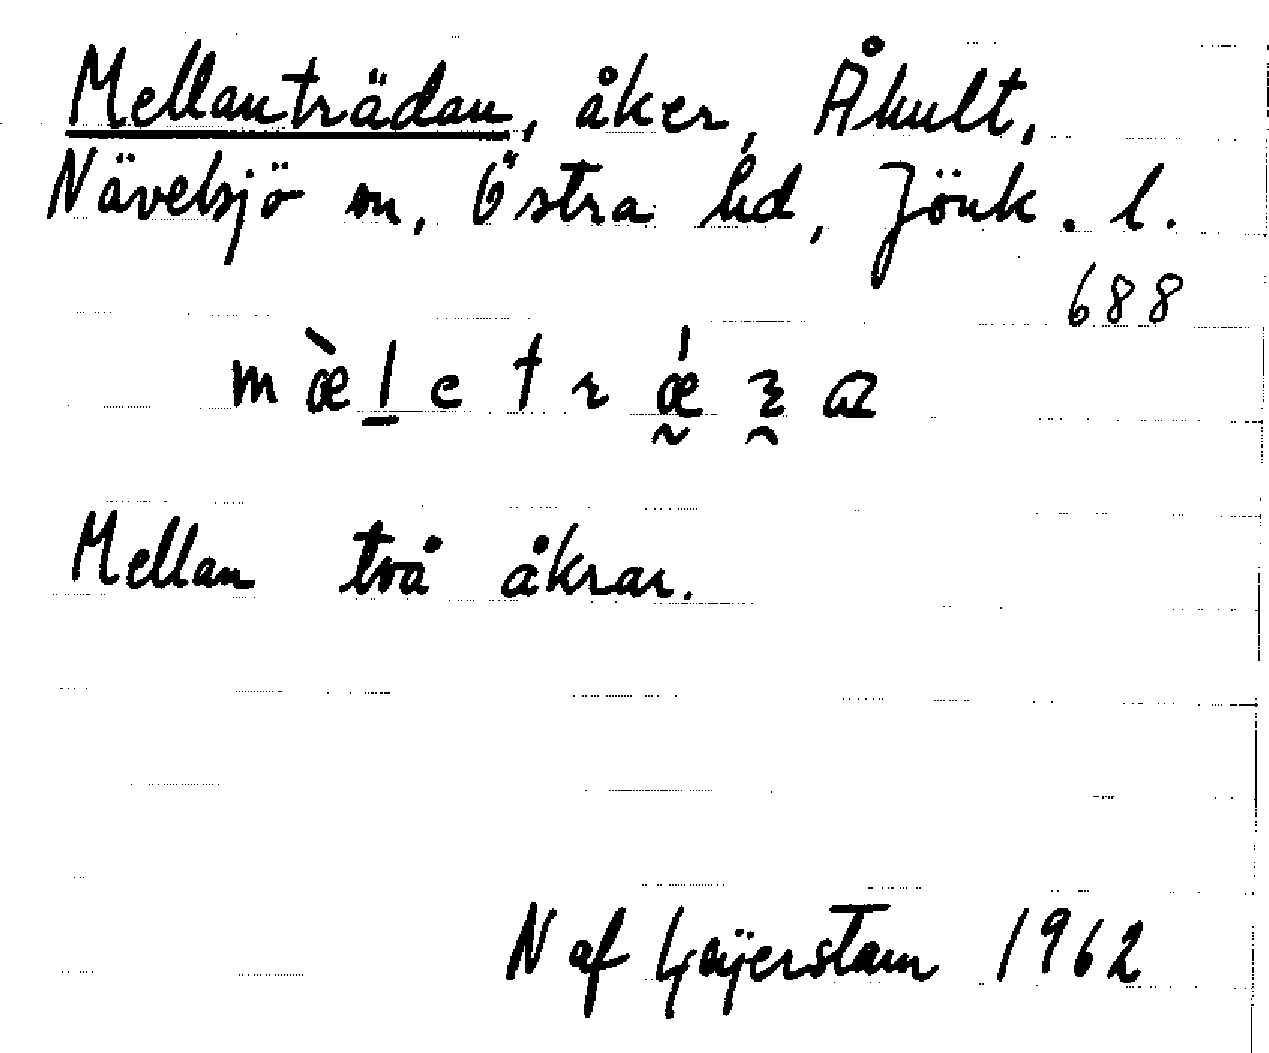 Mellanträdan, åker, Åhult,
Nävelsjö sn, Östra hd, Jönk. l.
688
Mellan två åkrar.
N af Geijerstam 1962